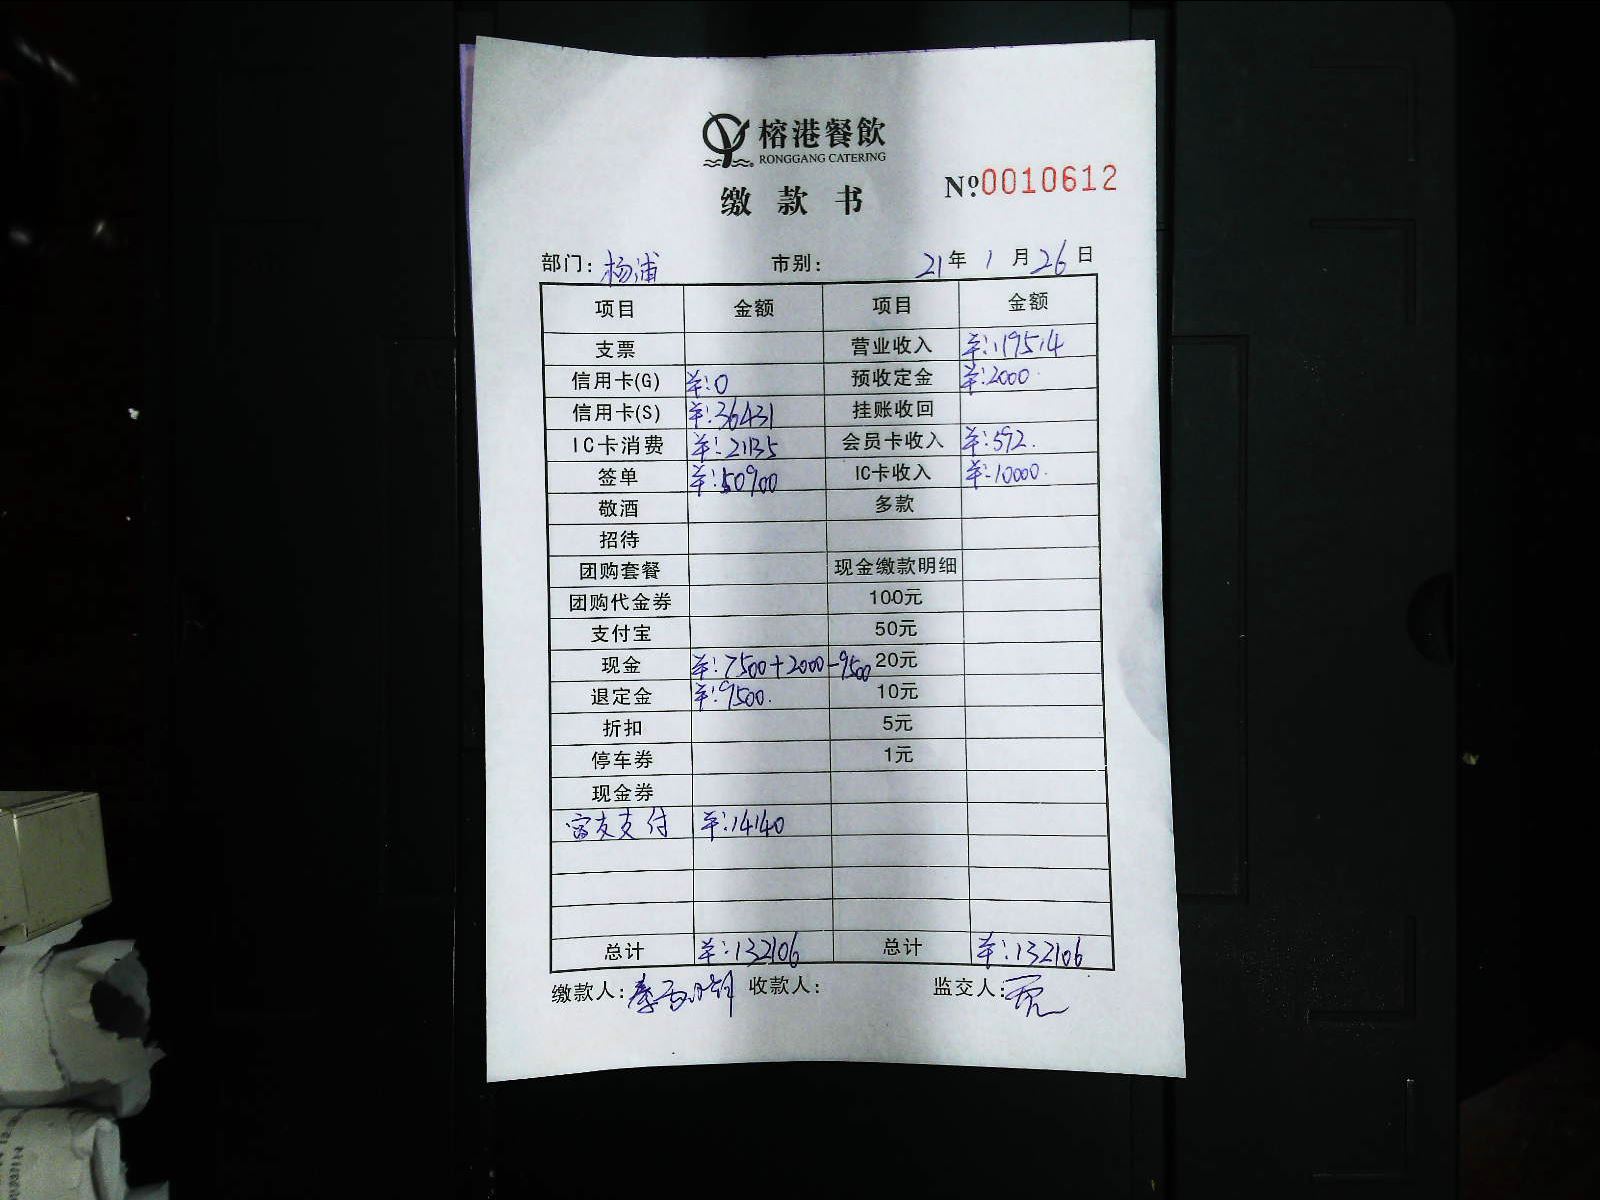 榕港餐飲
RONGGANG CATERING
缴款书 Nº:0010612
部门:杨浦 市别: 21年1月26日
项目 金额 项目 金额
支票 营业收入 ¥:119514
信用卡(G) ¥:0 预收定金 ¥:2000
信用卡(S) ¥:36431 挂账收回
IC卡消费 ¥:21135 会员卡收入 ¥:592.
签单 ¥:50900 IC卡收入 ¥:10000.
敬酒 多款
招待
团购套餐 现金缴款明细
团购代金券 100元
支付宝 50元
现金 ¥:7500+2000-9500 20元
退定金 ¥:9500. 10元
折扣 5元
停车券 1元
现金券
富友支付 ¥:14140
总计 ¥:132106 总计 ¥:132106
缴款人: 收款人: 监交人: